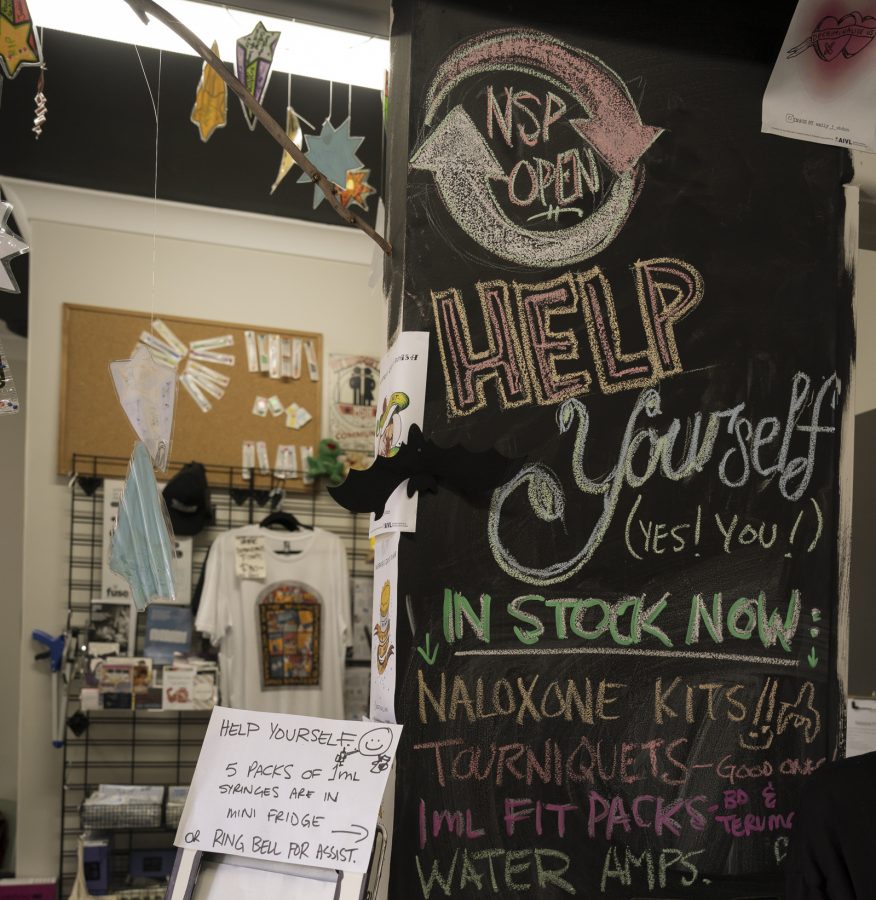 NSP
OPEN
HELP
Yourself
(YES! YOU!)
IN STOCK NOW:
NALOXONE KITS!!
TOURNIQUETS-GOOD
1ML FIT PACKS-BD &
TERUMO
WATER AMPS.
HELP YOURSELF
5 PACKS OF 1ML
SYRINGES ARE IN
MINI FRIDGE
OR RING BELL FOR ASSIST.
fuse
AIVL
AIVL